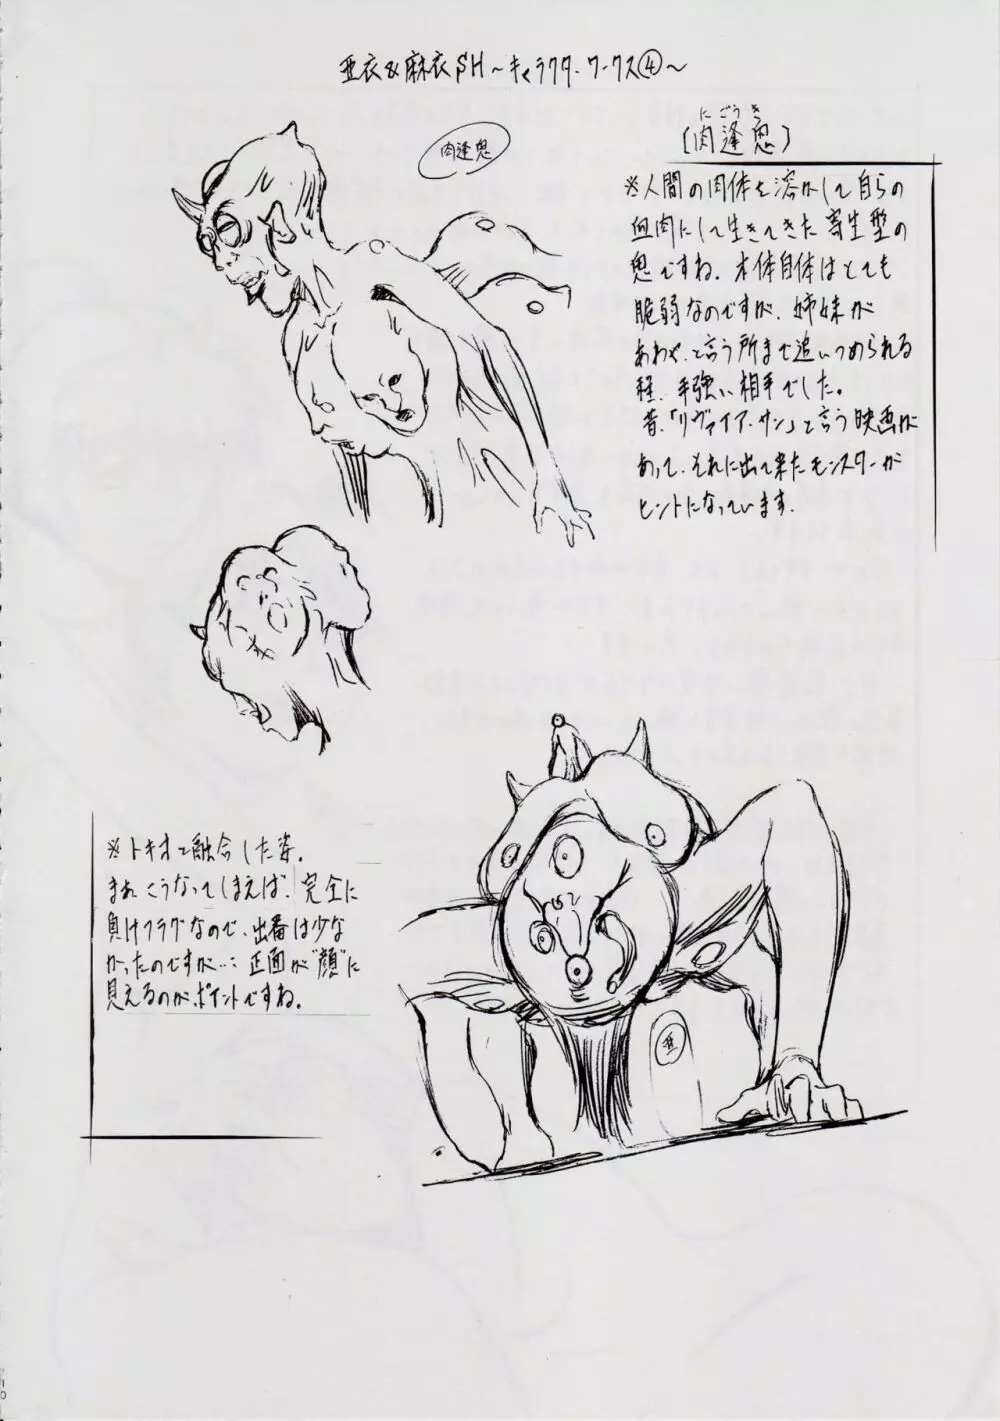 亜衣&麻衣SH～キャラクターワークス④～
肉逢鬼
にごうき
〔肉逢鬼〕
※人間の肉体を溶かして自らの
血肉にして生きてきた寄生型の
鬼ですね。本体自体はとても
脆弱なのですが、姉妹が
あわや、と言う所まで追いつめられる
程、手強い相手でした。
昔、「リヴァイアサン」と言う映画が
あって、それに出て来たモンスターが
ヒントになっています。
※トキオと融合した姿。
まあ、こうなってしまえば、完全に
負けフラグなので、出番は少な
かったのですが…：正面が“顔”に
見えるのがポイントですね。
亜